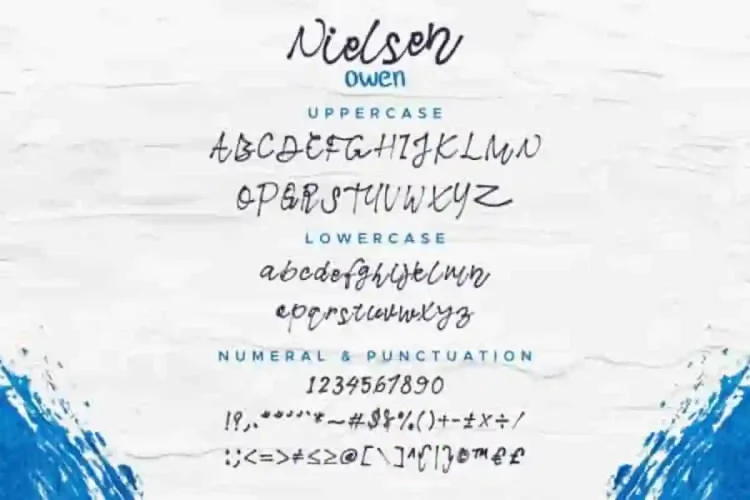 Nielsen
owen
UPPERCASE
ABCDEFGHIJKLMN
OPQRSTUVWXYZ
LOWERCASE
abcdefghijklmn
opqrstuvwxyz
NUMERAL & PUNCTUATION
1234567890
!?,.“”‘’*~#$&%()+-±×÷/
:;<=>≠≤≥@[\]^{|}©™€£